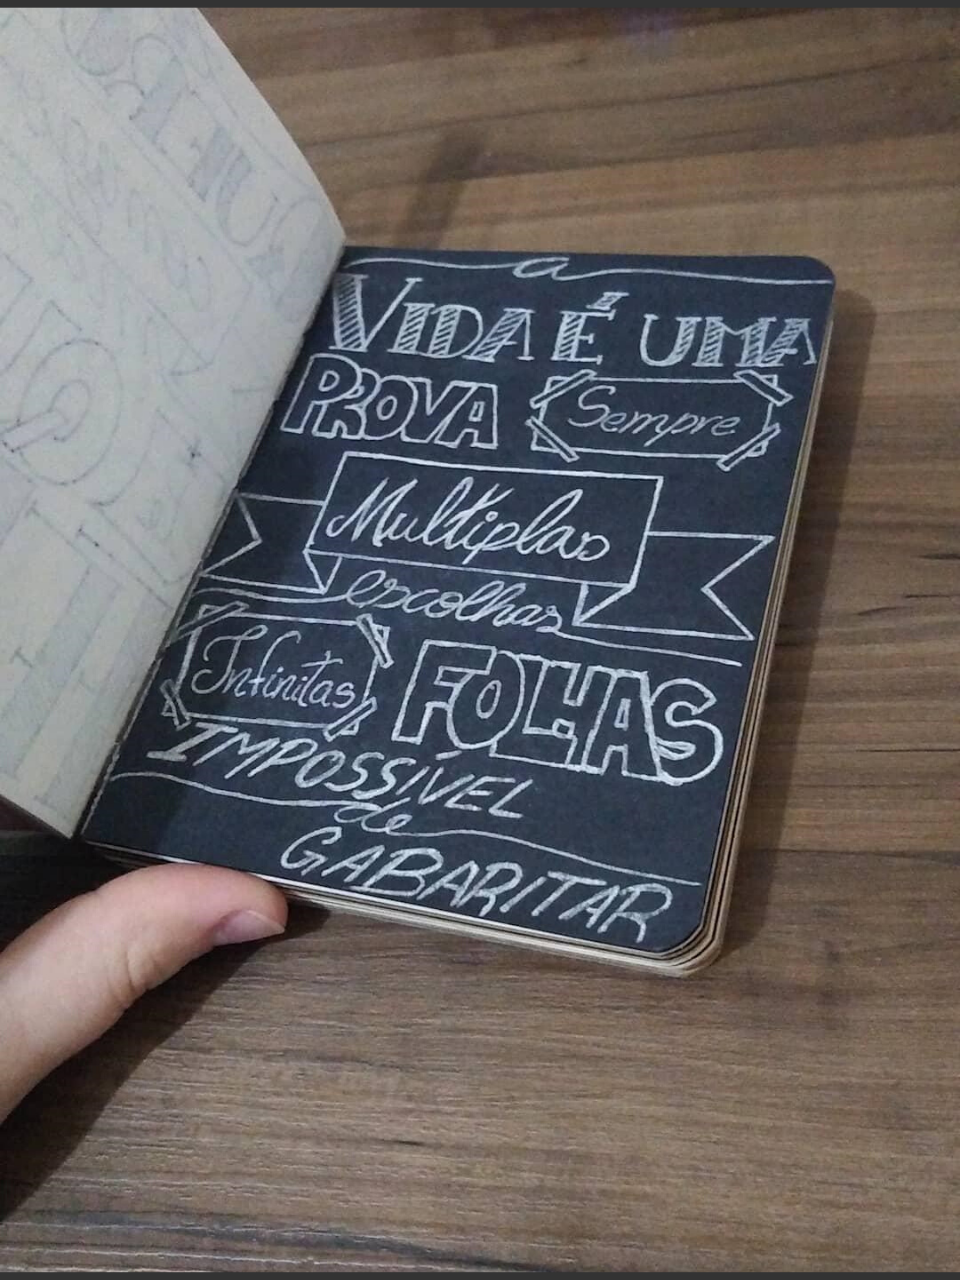 a
VIDA É UMA
PROVA Sempre
Multiplas
escolhas
Infinitas FOLHAS
IMPOSSÍVEL
de
GABARITAR